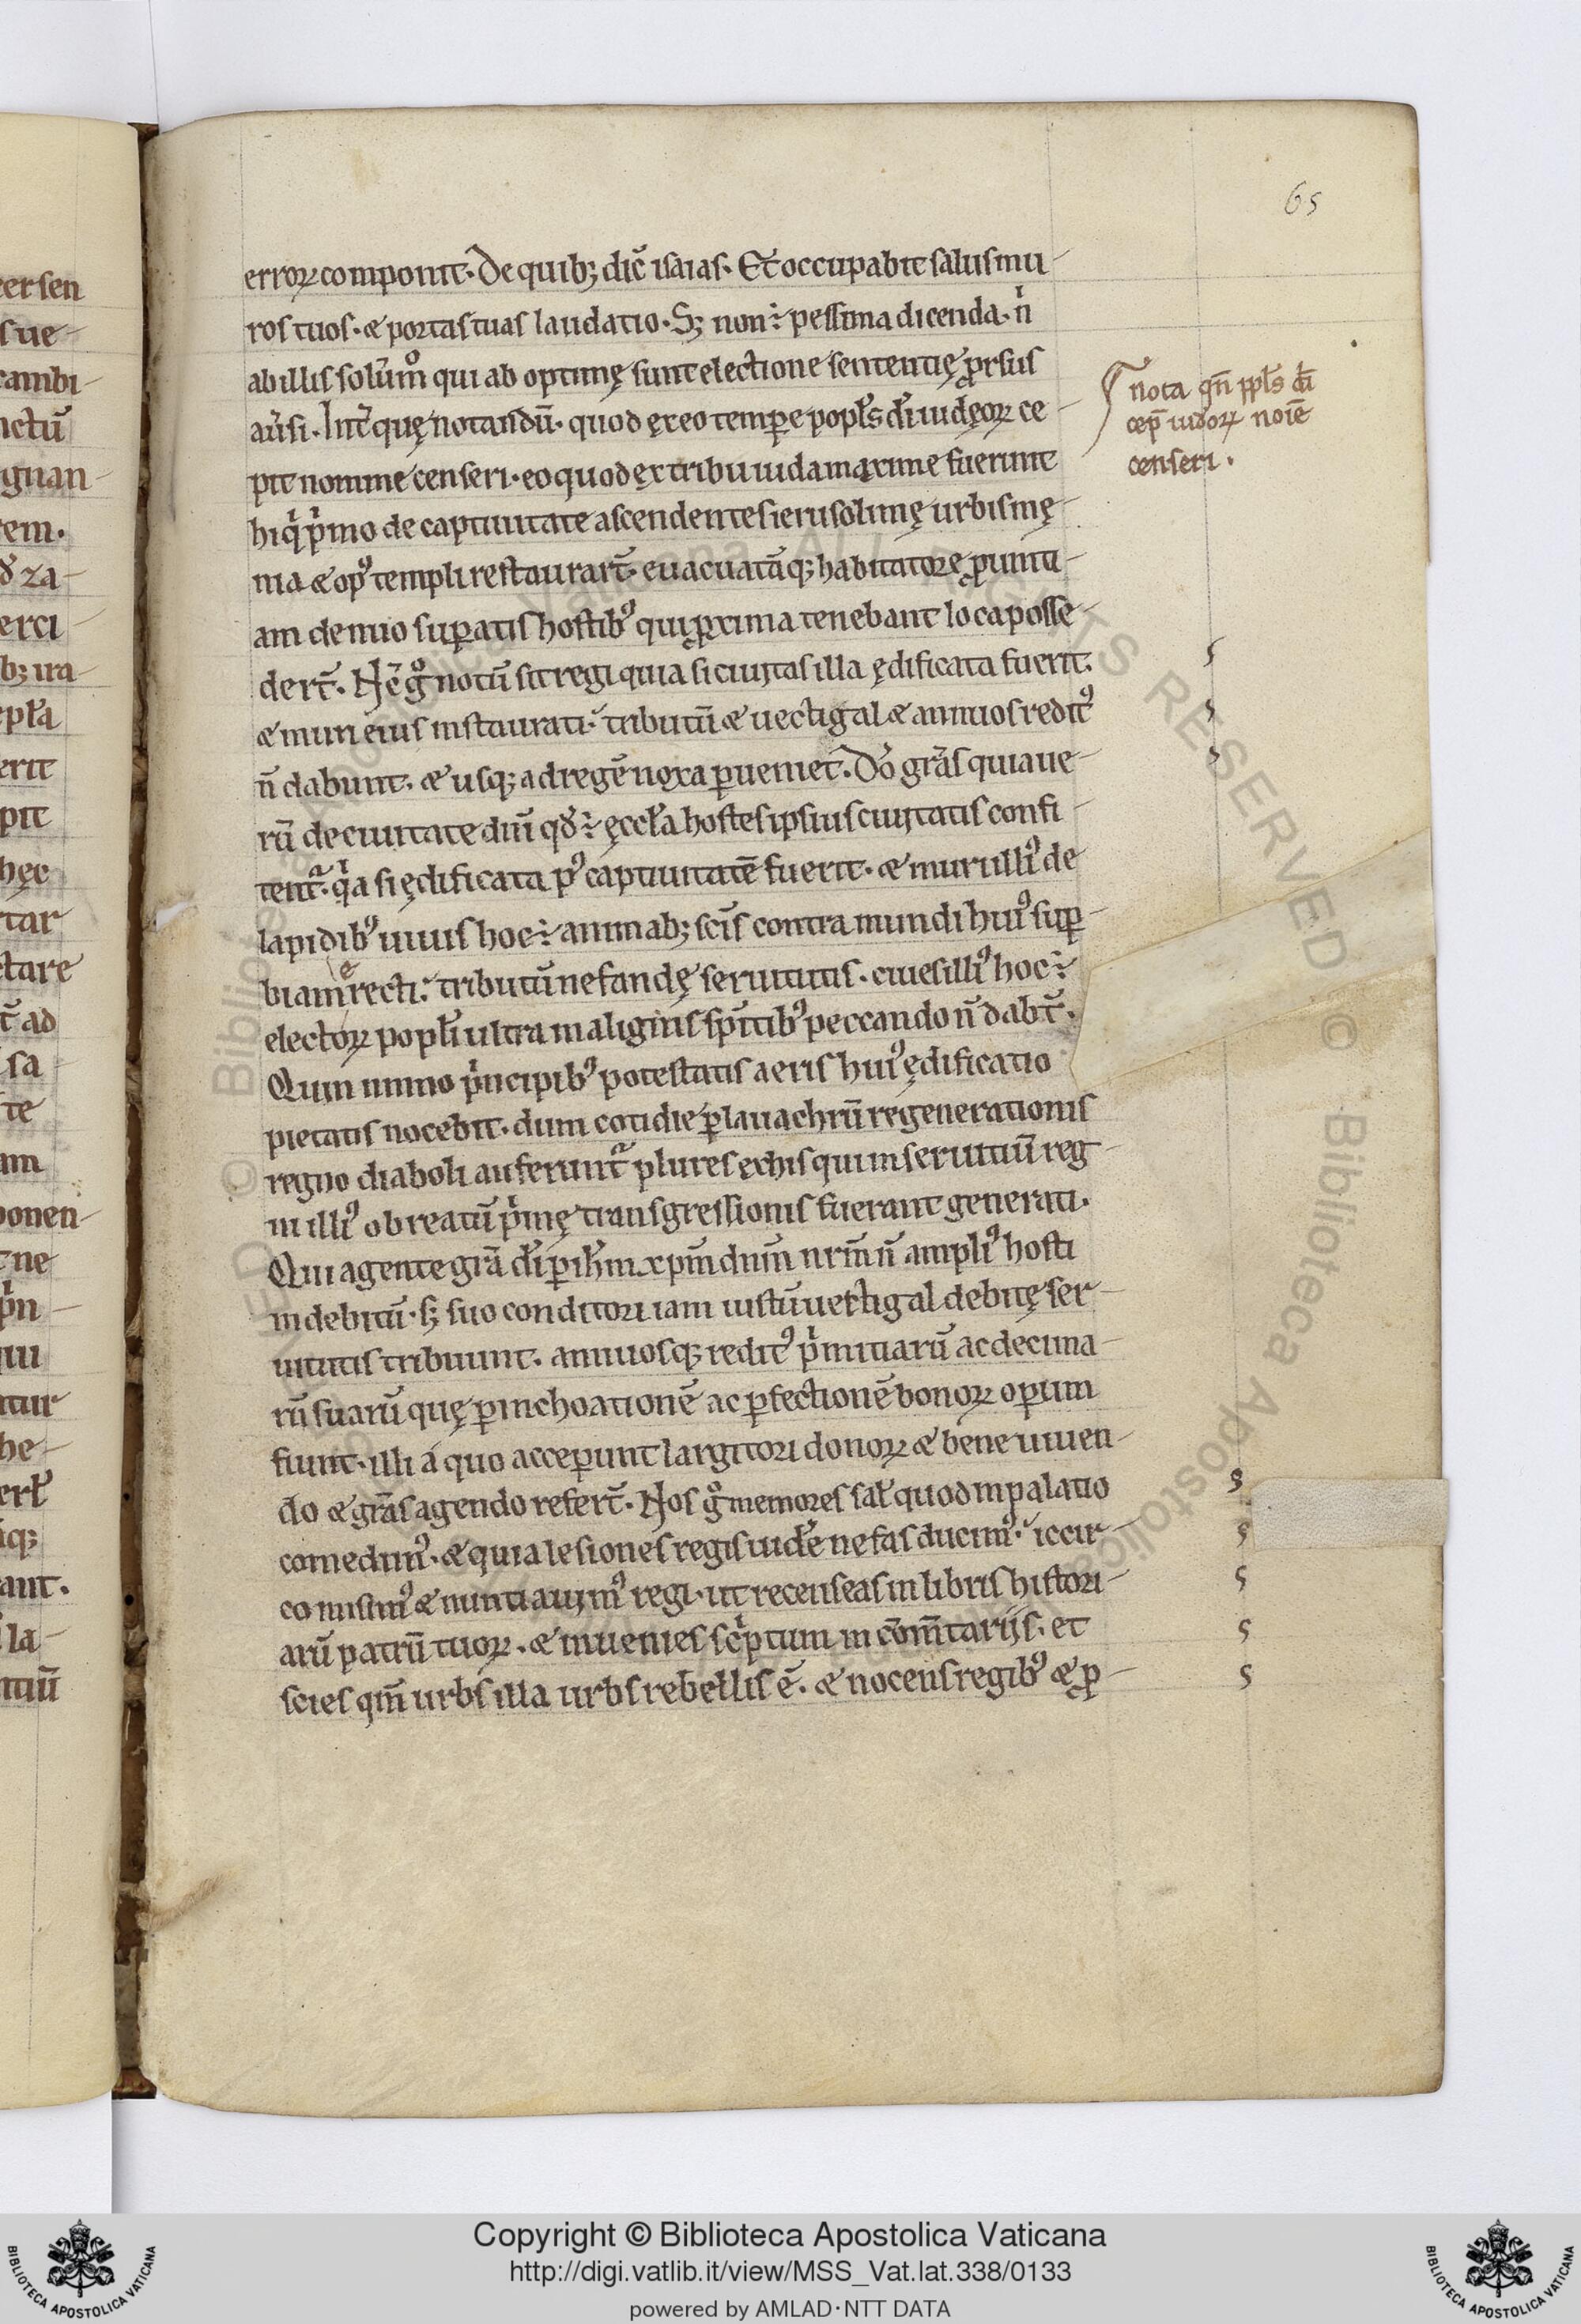 65
erroꝝ componit. De quibꝫ dic̄ isaias. Et occupabit salus mu
ros tuos. & portas tuas laudatio. Sꝫ non ÷ pessima dicenda. ń
ab illis solūm̊ qui ab optimę sunt electione sententię ꝓrsus
au͛si. Int͛ quę notandū. quod ex eo temꝑe popl̄s dī iudęoꝝ ce
pit nomine censeri. eo quod ex tribu iuda maxime fuerint
hi qͥ pͥmo de captiuitate ascendentes ierusolimę urbis mę
nia & opꝰ templi restaurart̄. euacuatāqꝫ habitatore ꝓuinti
am denuo suꝑatis hostibꝰ qui ꝓxima tenebant loca posse
dert̄. Nc̄ gͦ notū sit regi quia si ciuitas illa ędificata fuerit.
& muri eius instaurati. tributū & uectigal & annuos reditꝰ
n̄ dabunt. & usqꝫ ad regē noxa ꝑueniet. Dō gr̄as quia ue
rū de ciuitate dn̄i qd̄ ÷ ęccl̄a hostes ipsius ciuitatis confi
tentᷣ. qͥa si ędificata pꝰ captiuitatē fuerit. & muri illiꝰ de
lapidibꝰ uiuis hoc ÷ animabꝫ sc̄is contra mundi huiꝰ suꝑ
biam erecti. tributū nefandę seruitutis. ciues illiꝰ hoc ÷
electoꝝ popl̄i ultra malignis sp̄itibꝰ peccando n̄ dabt̄.
Quin immo pͥncipibꝰ potestatis aeris huiꝰ ędificatio
pietatis nocebit. dum cotidie ꝑ lauachrū regenerationis
regno diaboli auferuntᷣ plures ex his qui in seruitiū reg
ni illiꝰ ob reatū pͥmę transgressionis fuerant generati.
Qui agente gr̄a dī ꝑ ih̄m xp̄m dn̄m nr̄m n̄ ampliꝰ hosti
indebitū. sꝫ suo conditori iam iustū uectigal debitę ser
uitutis tribuunt. annuosqꝫ reditꝰ pͥmitiarū ac decima
rū suarū quę ꝑ inchoationē ac ꝑfectionē bonoꝝ operum
fiunt. illi a quo acceꝑunt largitori donoꝝ & bene uiuen
do & gr̄as agendo refert̄. Nos gͦ memores sal̄ quod in palatio
comedimꝰ. & quia lesiones regis uidēe nefas ducimꝰ. iccir
co misimꝰ & nuntiauimꝰ regi. ut recenseas in libris histori
arū patrū tuoꝝ. & inuenies scͥptum in cōm̄tariis. et
scies qm̄ urbs illa urbs rebellis ē. & nocens regibꝰ & ꝓ
nota qn̄ ppl̄s dī
cep̄ iudoꝝ noīe
censeri.
er sen
s ue
cambi
nctū
gnan
em.
za
erci
bꝫ ira
epl̄a
erit
pit
hęc
tar
ctare
ad
sa
te
am
onen
ne
pͥn
uu
ntur
he
ant.
la
ntiū
Copyright © Biblioteca Apostolica Vaticana
http://digi.vatlib.it/view/MSS_Vat.lat.338/0133
powered by AMLAD·NTT DATA
BIBLIOTECA APOSTOLICA VATICANA
BIBLIOTECA APOSTOLICA VATICANA